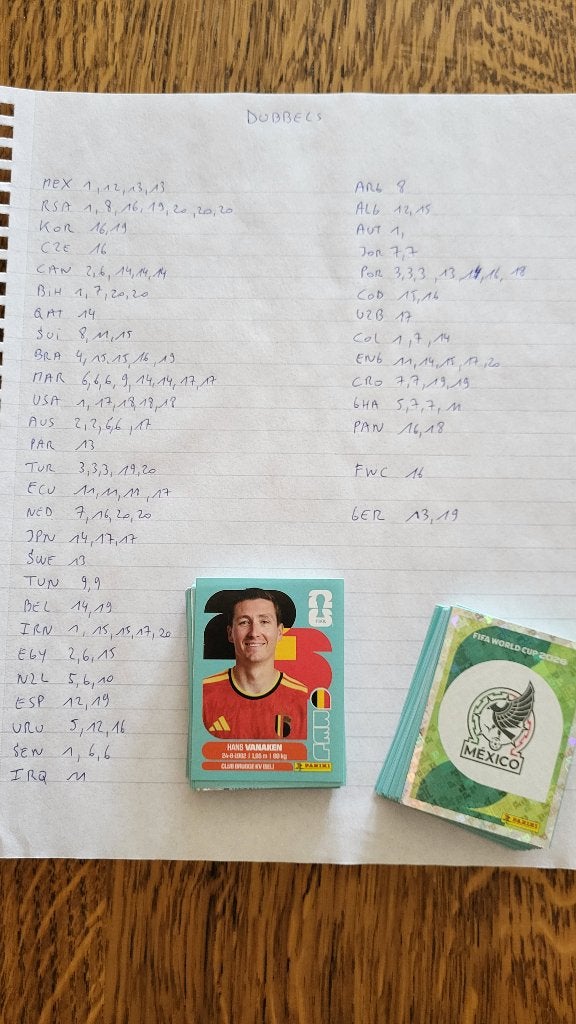 DUBBELS
MEX 1,12,13,13
RSA 1,8,16,19,20,20,20
KOR 16,19
CZE 16
CAN 2,6,14,14,14
BIH 1,7,20,20
QAT 14
SUI 8,11,15
BRA 4,15,15,16,19
MAR 6,6,6,9,14,14,17,17
USA 1,17,18,18,18
AUS 2,2,6,6,17
PAR 13
TUR 3,3,3,19,20
ECU 11,11,11,17
NED 7,16,20,20
JPN 14,17,17
SWE 13
TUN 9,9
BEL 14,19
IRN 1,15,15,17,20
EGY 2,6,15
NZL 5,6,10
ESP 12,19
URU 5,12,16
SEN 1,6,6
IRQ 11
ARG 8
ALG 12,15
AUT 1,
JOR 7,7
POR 3,3,3,13,14,16,18
COD 15,16
UZB 17
COL 1,7,14
ENG 11,14,15,17,20
CRO 7,7,19,19
GHA 5,7,7,11
PAN 16,18
FWC 16
GER 13,19
FIFA
HANS VANAKEN
24-8-1992 | 1,95 m | 80 kg
CLUB BRUGGE KV (BEL)
PANINI
FIFA WORLD CUP 2026
MÉXICO
PANINI